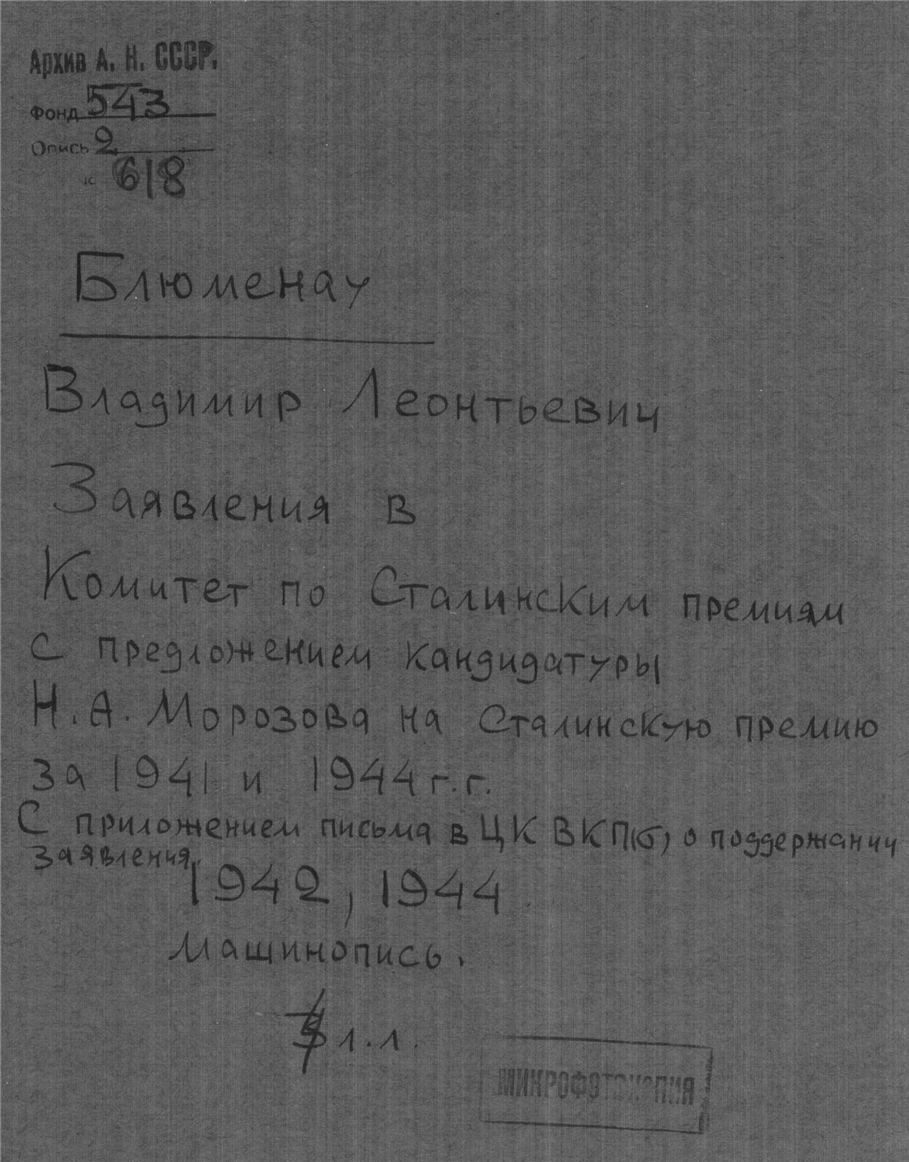 Архив А. Н. СССР.
Фонд 543
Опись 2
618
Блюменау
Владимир Леонтьевич
Заявления в
Комитет по Сталинским премиям
с предложением кандидатуры
Н. А. Морозова на Сталинскую премию
за 1941 и 1944 г.г.
С приложением письма в ЦК ВКП(б) о поддержании
заявления.
1942, 1944
Машинопись.
л.л.
МИКРОФОТОКОПИЯ